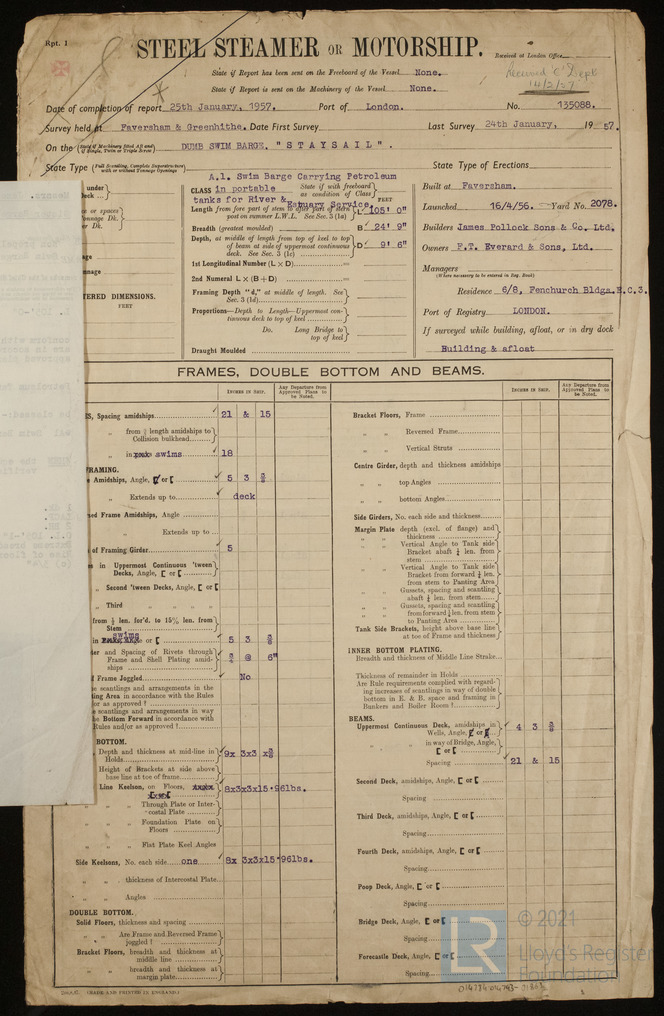 Rpt. 1
STEEL STEAMER OR MOTORSHIP.
Received at London Office
State if Report has been sent on the Freeboard of the Vessel None.
State if Report is sent on the Machinery of the Vessel None.
Received "C" Dept
14/2/57
Date of completion of report 25th January, 1957. Port of London. No. 135088.
Survey held at Faversham & Greenhithe. Date First Survey Last Survey 24th January, 1957.
On the (State if Machinery fitted Aft and if Single, Twin or Triple Screw) DUMB SWIM BARGE. "STAYSAIL".
State Type (Full Scantling, Complete Superstructure with or without Tonnage Openings) State Type of Erections
A.1. Swim Barge Carrying Petroleum
CLASS in portable State if with freeboard as condition of Class
tanks for River & Estuary Service. FEET
Length from fore part of stem to after part of stern post on summer L.W.L. See Sec. 3 (1a) L 105' 0"
Breadth (greatest moulded) B 24' 9"
Depth, at middle of length from top of keel to top of beam at side of uppermost continuous deck. See Sec. 3 (1c) D 9' 6"
1st Longitudinal Number (L × D) =
2nd Numeral L × (B + D) =
Framing Depth "d," at middle of length. See Sec. 3 (1d)
Proportions—Depth to Length—Uppermost continuous deck to top of keel
Do. Long Bridge to top of keel
Draught Moulded
Built at Faversham.
Launched 16/4/56. Yard No. 2078.
Builders James Pollock Sons & Co. Ltd.
Owners F.T. Everard & Sons, Ltd.
Managers
(Where necessary to be entered in Reg. Book)
Residence 6/8, Fenchurch Bldgs. E.C.3.
Port of Registry LONDON.
If surveyed while building, afloat, or in dry dock
Building & afloat
TERED DIMENSIONS.
FEET
FRAMES, DOUBLE BOTTOM AND BEAMS.
INCHES IN SHIP. Any Departure from Approved Plans to be Noted.
INCHES IN SHIP. Any Departure from Approved Plans to be Noted.
ES, Spacing amidships 21 & 15
from ⅗ length amidships to Collision bulkhead
in swims 18
FRAMING.
e Amidships, Angle, [ or [ 5 3
Extends up to deck
sed Frame Amidships, Angle
Extends up to
of Framing Girder 5
es in Uppermost Continuous 'tween Decks, Angle, [ or [
Second 'tween Decks, Angle, [ or [
Third
from ⅗ len. for'd. to 15% len. from Stem
in swims or [ 5 3
ter and Spacing of Rivets through Frame and Shell Plating amidships @ 6"
Frame Joggled No
e scantlings and arrangements in the ing Area in accordance with the Rules or as approved ?
e scantlings and arrangements in way he Bottom Forward in accordance with Rules and/or as approved ?
BOTTOM.
Depth and thickness at mid-line in Holds 9x 3x3
Height of Brackets at side above base line at toe of frame
Line Keelson, on Floors, 8x3x3x15·96lbs.
Through Plate or Intercostal Plate
Foundation Plate on Floors
Flat Plate Keel Angles
Side Keelsons, No. each side one 8x 3x3x15·96lbs.
thickness of Intercostal Plate
Angles
DOUBLE BOTTOM.
Solid Floors, thickness and spacing
Are Frame and Reversed Frame joggled ?
Bracket Floors, breadth and thickness at middle line
breadth and thickness at margin plate
Bracket Floors, Frame
Reversed Frame
Vertical Struts
Centre Girder, depth and thickness amidships
top Angles
bottom Angles
Side Girders, No. each side and thickness
Margin Plate depth (excl. of flange) and thickness
Vertical Angle to Tank side Bracket abaft ¼ len. from stem
Vertical Angle to Tank side Bracket from forward ¼ len. from stem to Panting Area
Gussets, spacing and scantling abaft ¼ len. from stem
Gussets, spacing and scantling from forward ¼ len. from stem to Panting Area
Tank Side Brackets, height above base line at toe of Frame and thickness
INNER BOTTOM PLATING.
Breadth and thickness of Middle Line Strake
Thickness of remainder in Holds
Are Rule requirements complied with regarding increases of scantlings in way of double bottom in E. & B. space and framing in Bunkers and Boiler Room ?
BEAMS.
Uppermost Continuous Deck, amidships in Wells, Angle, [ or [ 4 3
in way of Bridge, Angle, [ or [
Spacing 21 & 15
Second Deck, amidships, Angle, [ or [
Spacing
Third Deck, amidships, Angle, [ or [
Spacing
Fourth Deck, amidships, Angle, [ or [
Spacing
Poop Deck, Angle, [ or [
Spacing
Bridge Deck, Angle, [ or [
Spacing
Forecastle Deck, Angle, [ or [
Spacing
(MADE AND PRINTED IN ENGLAND.)
LR
© 2021
Lloyd's Register
Foundation